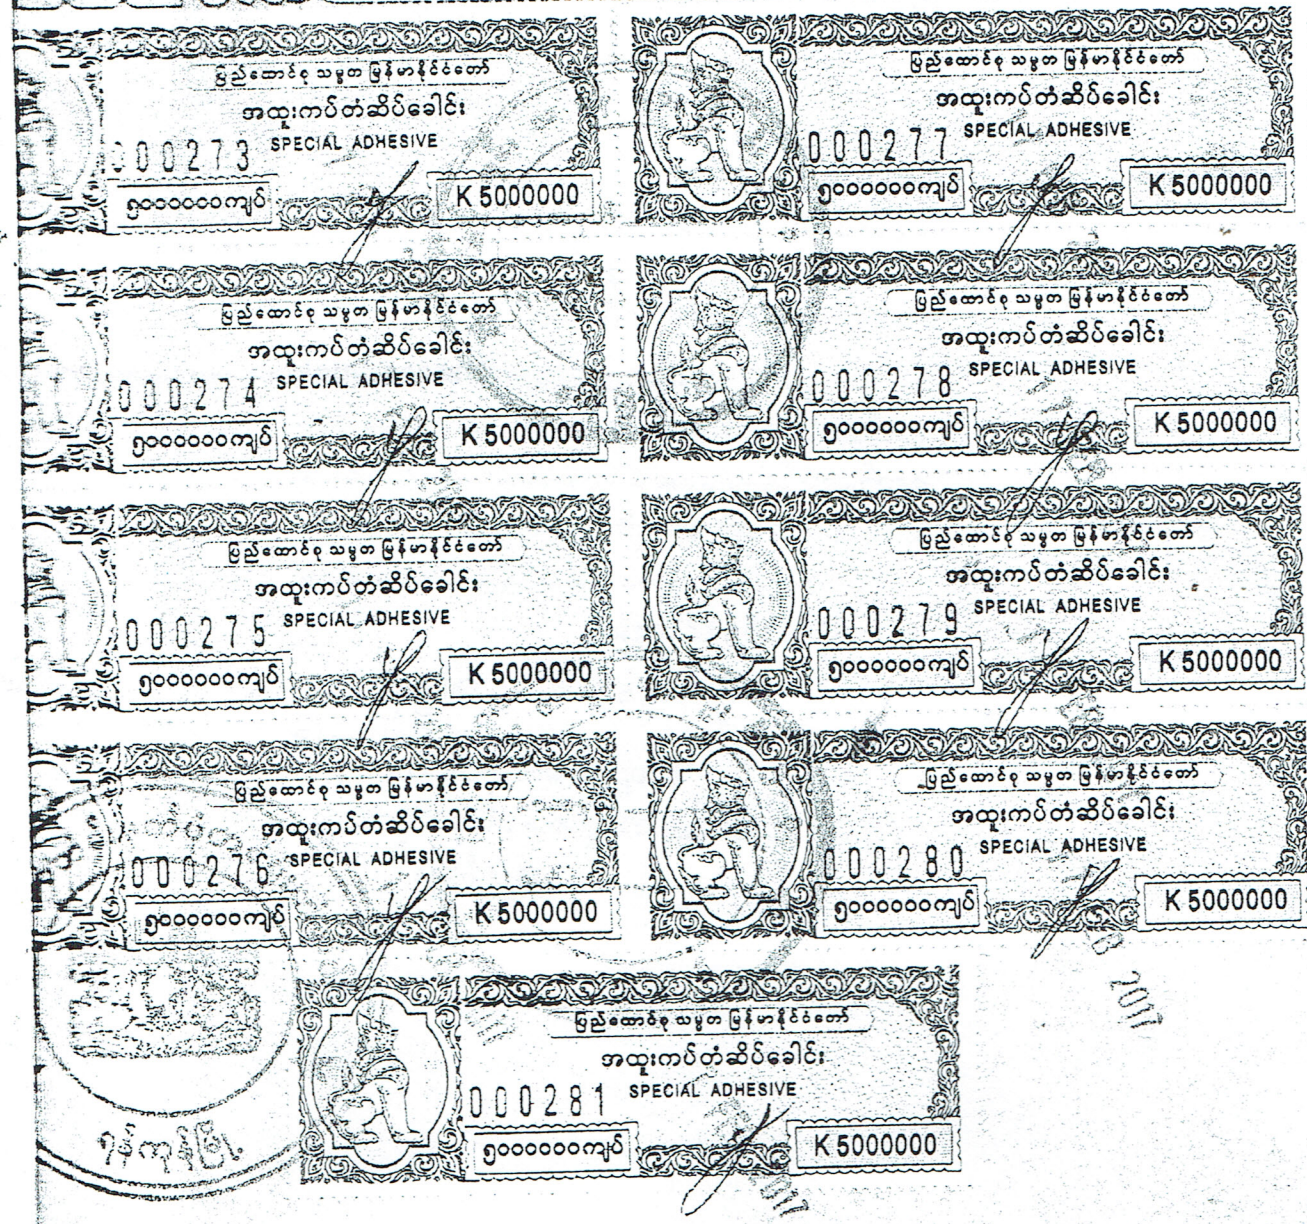 ပြည်ထောင်စု သမ္မတ မြန်မာနိုင်ငံတော်
အထူးကပ်တံဆိပ်ခေါင်း
SPECIAL ADHESIVE
000273
၅၀၀၀၀၀၀ကျပ်
K 5000000
ပြည်ထောင်စု သမ္မတ မြန်မာနိုင်ငံတော်
အထူးကပ်တံဆိပ်ခေါင်း
SPECIAL ADHESIVE
000277
၅၀၀၀၀၀၀ကျပ်
K 5000000
ပြည်ထောင်စု သမ္မတ မြန်မာနိုင်ငံတော်
အထူးကပ်တံဆိပ်ခေါင်း
SPECIAL ADHESIVE
000274
၅၀၀၀၀၀၀ကျပ်
K 5000000
ပြည်ထောင်စု သမ္မတ မြန်မာနိုင်ငံတော်
အထူးကပ်တံဆိပ်ခေါင်း
SPECIAL ADHESIVE
000278
၅၀၀၀၀၀၀ကျပ်
K 5000000
ပြည်ထောင်စု သမ္မတ မြန်မာနိုင်ငံတော်
အထူးကပ်တံဆိပ်ခေါင်း
SPECIAL ADHESIVE
000275
၅၀၀၀၀၀၀ကျပ်
K 5000000
ပြည်ထောင်စု သမ္မတ မြန်မာနိုင်ငံတော်
အထူးကပ်တံဆိပ်ခေါင်း
SPECIAL ADHESIVE
000279
၅၀၀၀၀၀၀ကျပ်
K 5000000
ပြည်ထောင်စု သမ္မတ မြန်မာနိုင်ငံတော်
အထူးကပ်တံဆိပ်ခေါင်း
SPECIAL ADHESIVE
000276
၅၀၀၀၀၀၀ကျပ်
K 5000000
ပြည်ထောင်စု သမ္မတ မြန်မာနိုင်ငံတော်
အထူးကပ်တံဆိပ်ခေါင်း
SPECIAL ADHESIVE
000280
၅၀၀၀၀၀၀ကျပ်
K 5000000
2017
ပြည်ထောင်စု သမ္မတ မြန်မာနိုင်ငံတော်
အထူးကပ်တံဆိပ်ခေါင်း
SPECIAL ADHESIVE
000281
၅၀၀၀၀၀၀ကျပ်
K 5000000
ရန်ကုန်မြို့